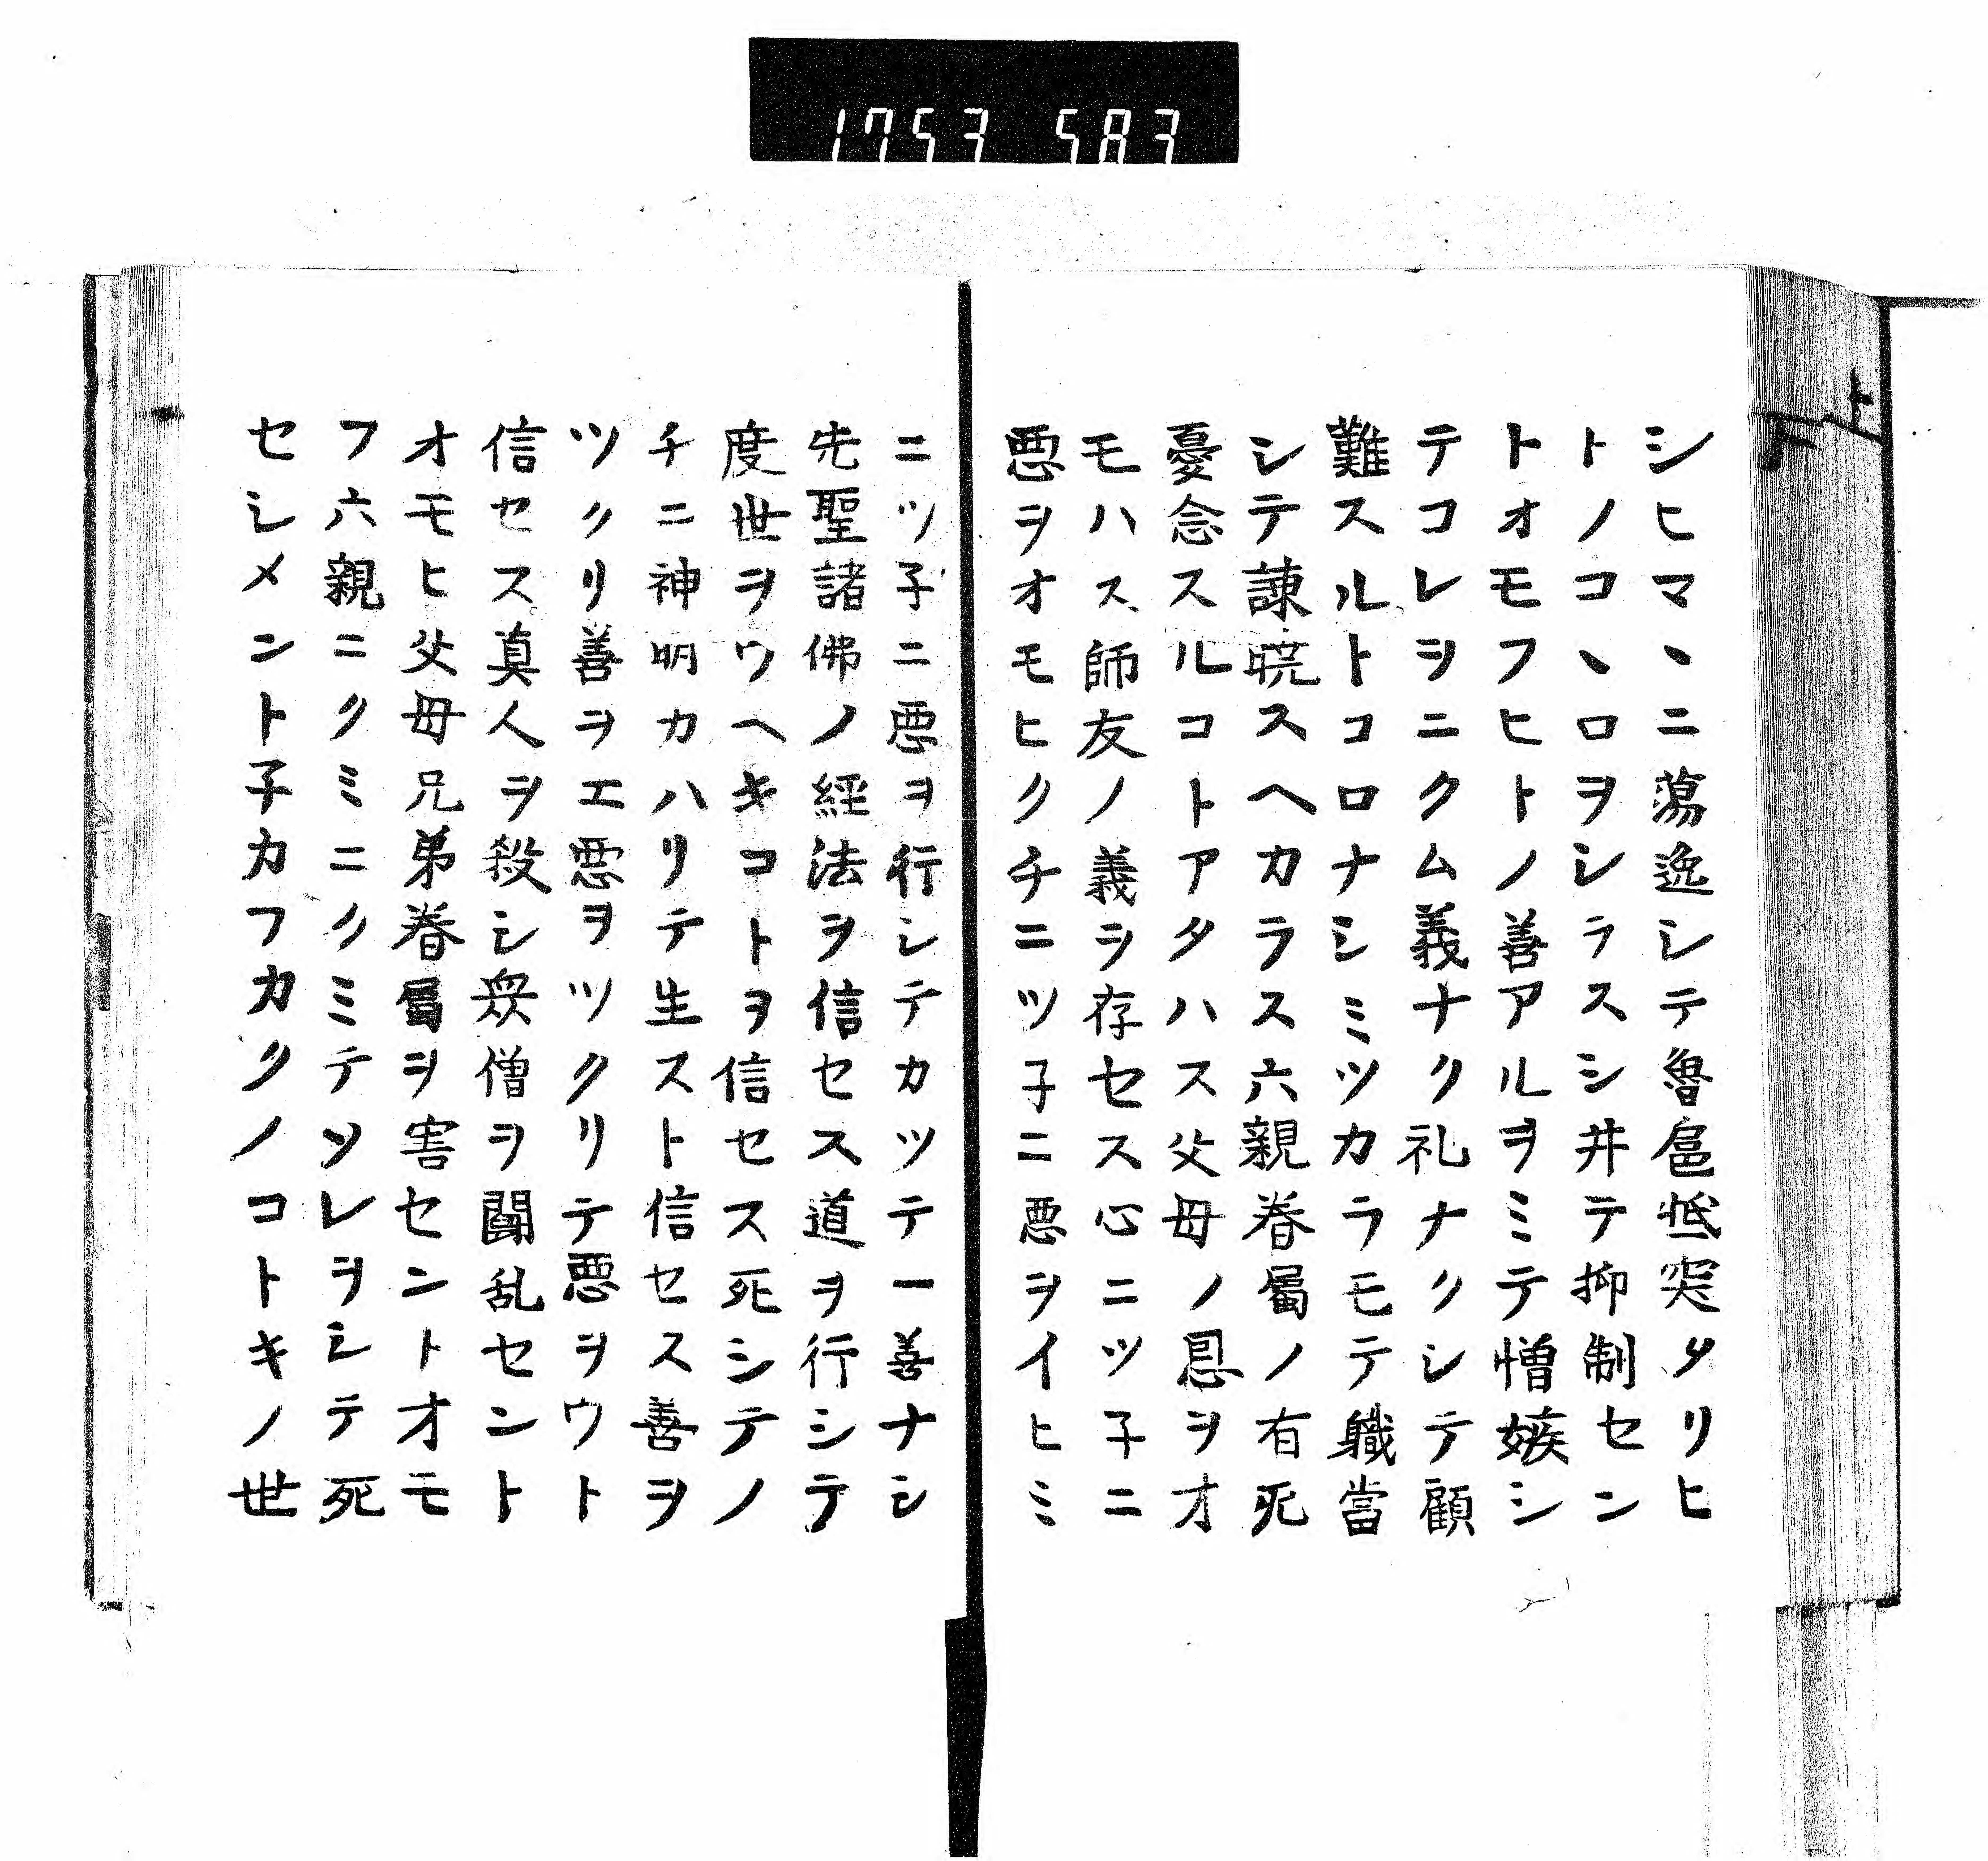 1753 583
シヒマヽニ蕩逸シテ魯扈抵突タリヒ
トノコヽロヲシラスシ井テ抑制セン
トオモフヒトノ善アルヲミテ憎嫉シ
テコレヲニクム義ナク礼ナクシテ顧
難スルトコロナシミツカラモテ軄當
シテ諌暁スヘカラス六親眷屬ノ有死
憂念スルコトアタハス父母ノ恩ヲオ
モハス師友ノ義ヲ存セス心ニツ子ニ
悪ヲオモヒクチニツ子ニ悪ヲイヒミ
ニツ子ニ悪ヲ行シテカツテ一善ナシ
先聖諸佛ノ經法ヲ信セス道ヲ行シテ
度世ヲウヘキコトヲ信セス死シテノ
チニ神明カハリテ生スト信セス善ヲ
ツクリ善ヲエ悪ヲツクリテ悪ヲウト
信セス真人ヲ殺シ衆僧ヲ闘乱セント
オモヒ父母兄弟眷屬ヲ害セントオモ
フ六親ニクミニクミテソレヲシテ死
セシメント子カフカクノコトキノ世